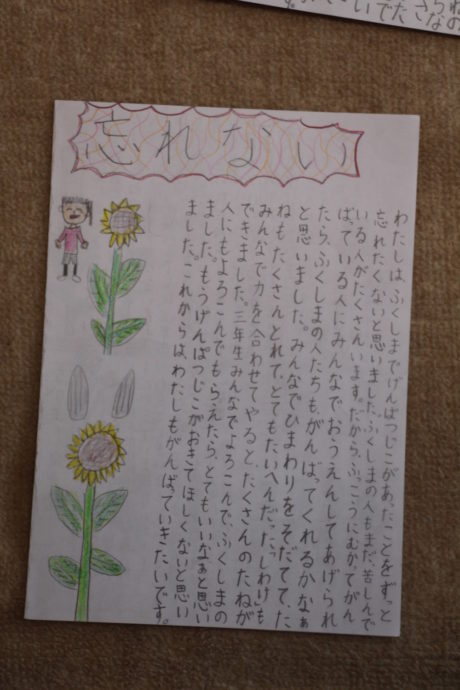 忘れない
わたしは、ふくしまでげんぱつじこがあったことをずっと
忘れたくないと思いました。ふくしまの人も、まだ、苦しんで
いる人がたくさんいます。だから、ふっこうにむかってがん
ばっている人にみんなでおうえんしてあげられ
たら、ふくしまの人たちもがんばってくれるかなぁ
と思いました。みんなでひまわりをそだてて、た
ねも、たくさんとれて、とてもたいへんだった「しわけ」も、
みんなで力を合わせてやると、たくさんのたねが
できました。三年生みんなでよろこんで、ふくしまの
人にもよろこんでもらえたら、とてもいいなぁと思い
ました。もうげんぱつじこがおきてほしくないと思い
ました。これからは、わたしもがんばっていきたいです。